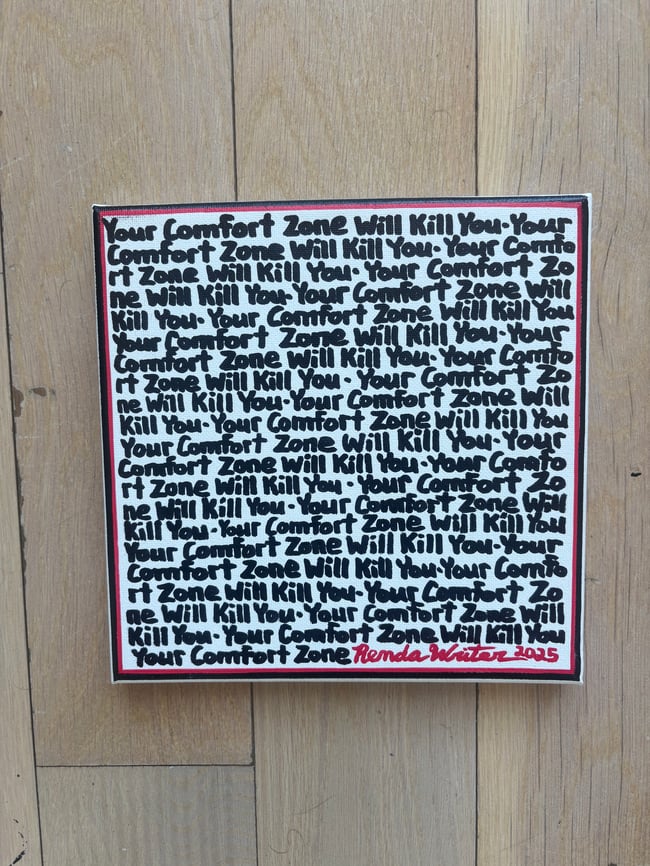 Your Comfort Zone Will Kill You·Your
Comfort Zone Will Kill You·Your Comfo
rt Zone Will Kill You·Your Comfort Zo
ne Will Kill You·Your Comfort Zone Will
Kill You·Your Comfort Zone Will Kill You
Your Comfort Zone Will Kill You·Your
Comfort Zone Will Kill You·Your Comfo
rt Zone Will Kill You·Your Comfort Zo
ne Will Kill You·Your Comfort Zone Will
Kill You·Your Comfort Zone Will Kill You
Your Comfort Zone Will Kill You·Your
Comfort Zone Will Kill You·Your Comfo
rt Zone Will Kill You·Your Comfort Zo
ne Will Kill You·Your Comfort Zone Will
Kill You·Your Comfort Zone Will Kill You
Your Comfort Zone Will Kill You·Your
Comfort Zone Will Kill You·Your Comfo
rt Zone Will Kill You·Your Comfort Zo
ne Will Kill You·Your Comfort Zone Will
Kill You·Your Comfort Zone Will Kill You
Your Comfort Zone Renda Writer 2025